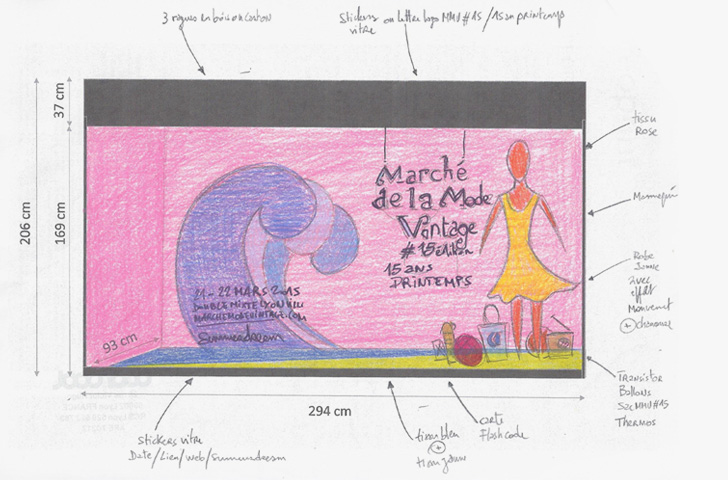 3 vagues en bois ou carton
Stickers ou letter logo MMV #15 / 15 ans printemps
vitre
37 cm
206 cm
169 cm
93 cm
294 cm
Marché
de la Mode
Vintage
# 15 édition
15 ans
PRINTEMPS
21-22 MARS 2015
DOUBLE MIXTE LYON VILLEU
MARCHEMODEVINTAGE.COM
Summerdream
tissu
Rose
Mannequin
Robe
Jaune
avec
effet
Mouvement
+ chaussure
TRANSISTOR
Ballons
Sac MMV #15
THERMOS
stickers vitre
Date/Lieu/Web/summerdream
tissu bleu
+
tissu jaune
carte
Flashcode